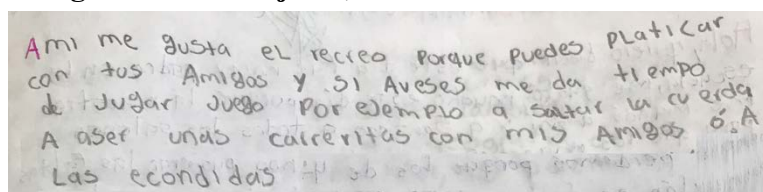 Ami me gusta eL recreo Porque Puedes PLaticar
con tus Amigos y si Aveses me da tiempo
de Jugar Juego Por eJemPLo a saltar la cuerda
A aser unas carreritas con mis Amigos ó A
Las econdidas